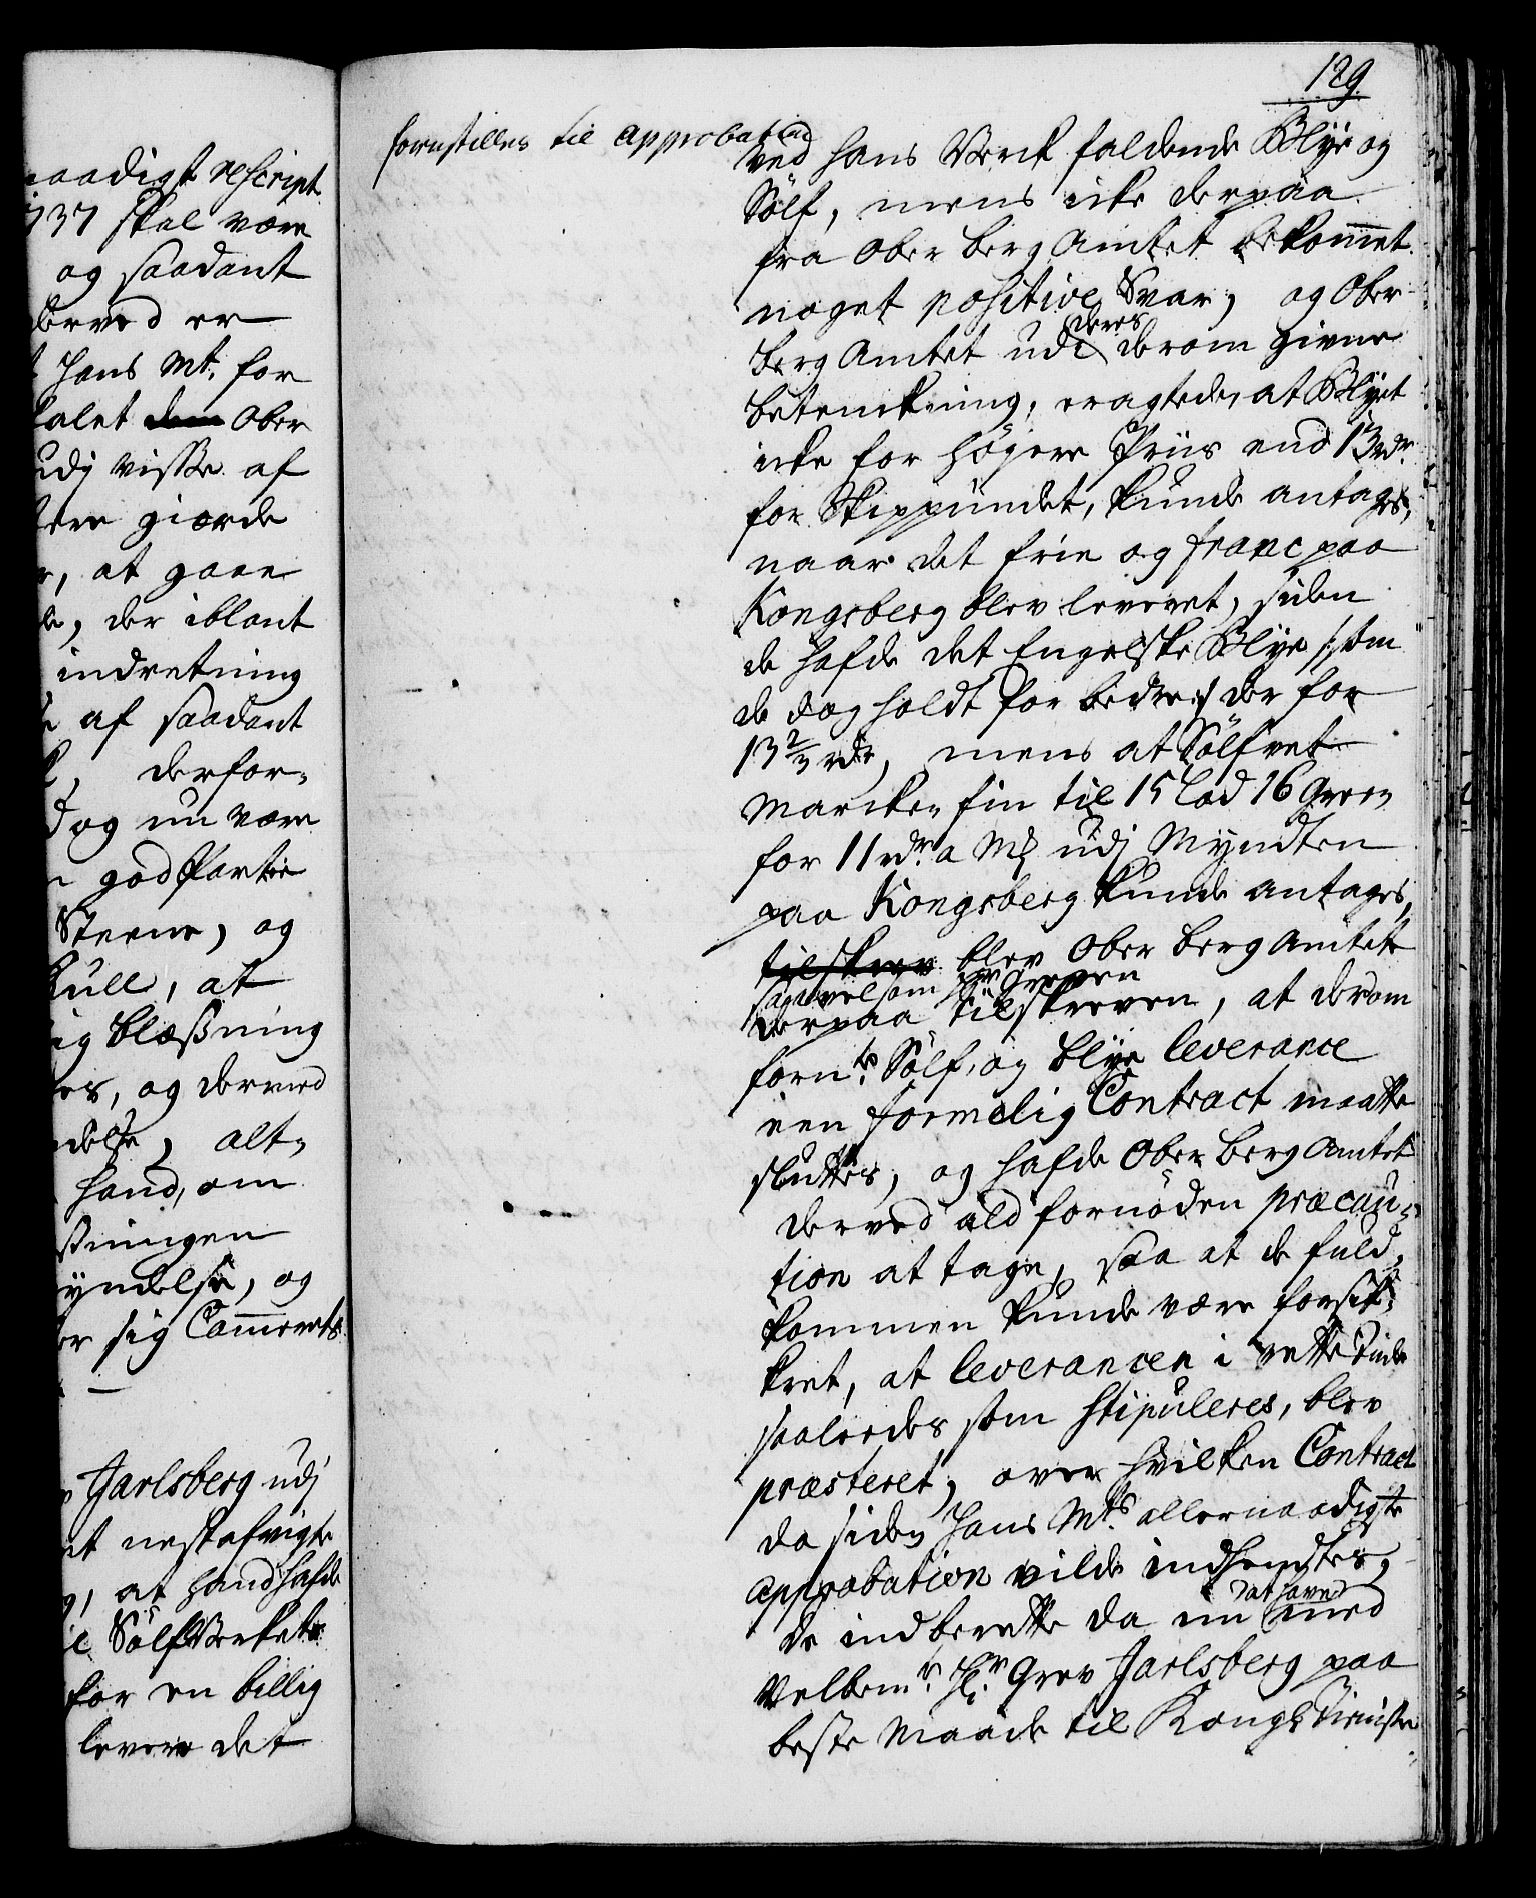 129
naadigst rescript
1737 skal være
og saadant
derved er
hans Mt. for
talet dem Ober
udj visse af
giærde
, at gaae
de, der iblant
indretning
af saadant
, derfor-
dog nu være
god Partie
Steene, og
Kull, at
ig blæsning
es, og derved
delse, alt-
haand, om
sningen
yndelse, og
er sig Cammerets
Jarlsberg udj
et nestafvigte
, at hand hafde
e Sölfverket
for en billig
levere det
fornstilles til approbation
ved hans Verck faldende Blye og
Sölf, mens icke derpaa
fra Ober Berg Amtet bekommet
noget positive Svar, og Ober
Berg Amtet udi deres derom givne
betenckning, eragtede, at Blyet
icke for högere Priis end 13 rdr.
for Skippundet, kunde antages,
naar det frie og franc paa
Kongsberg blev leveret, siden
de hafde det Engelske Blye /: som
de dog holdt for bedre :/ der for
13 2/3 rdr, mens at Sölfvet
Marcken fin til 15 Lod 16 Green
for 11 rdr. a Mk udj Myndten
paa Kongsberg kunde antages,
tilskrev blev Ober Berg Amtet
saavelsom hr Greven
derpaa tilskreven, at derom
fornte. Sölf, og blye leverance
een formelig Contract maatte
sluttes, og hafde Ober Berg Amtet
derved ald fornöden præcau-
tion at tage, saa at de fuld-
kommen kunde være forsik-
kret, at leverancen i rette Tiide
saaledes som stipuleres, blev
præsteret, over hvilken Contract
da siden Hans Mts. allernaadigste
approbation vilde indhendtes,
de indberette da nu at have med
Velbemte. Hr. Grev Jarlsberg paa
beste Maade til Kongl. Tieniste